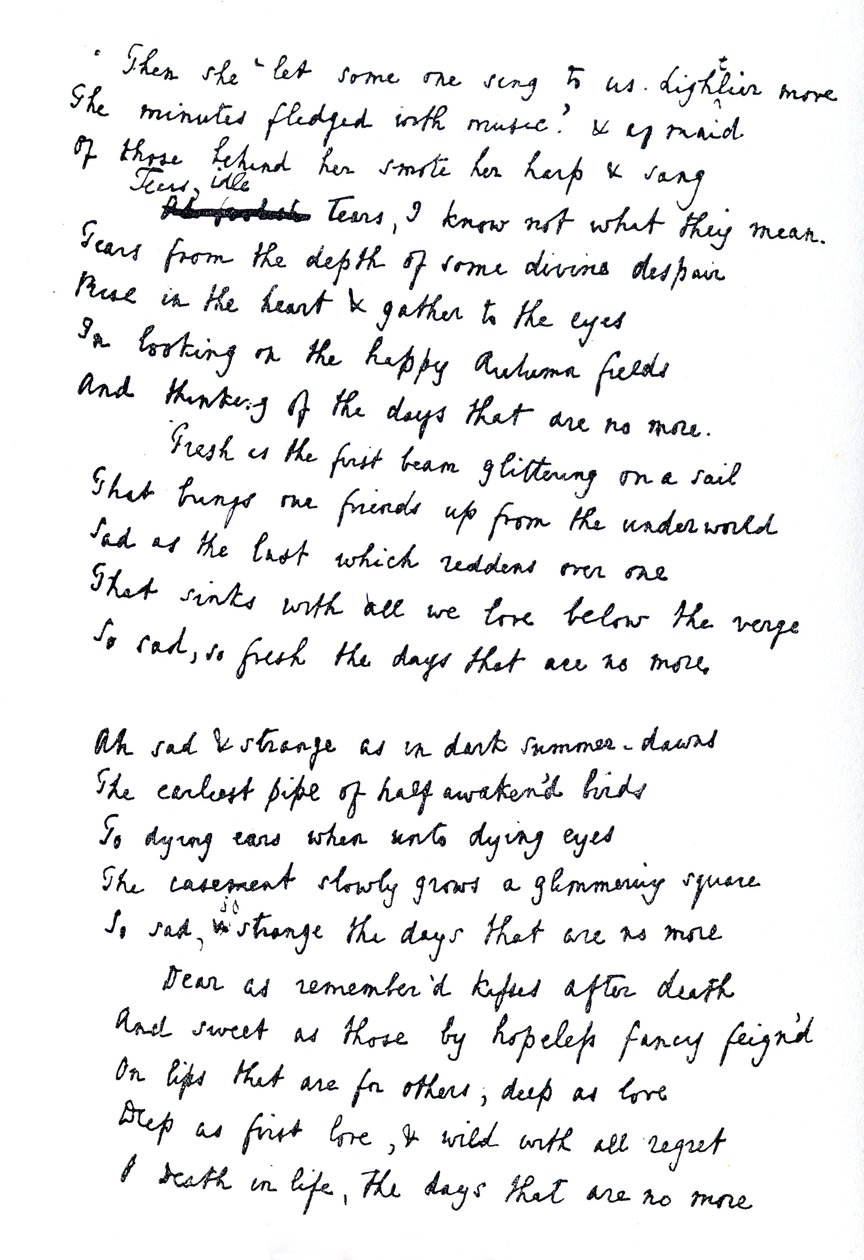 Then she "let some one sing to us. Lightlier move
The minutes fledged with music:" & a maid
Of those behind her smote her harp & sang
Tears, idle
Tears, I know not what they mean.
Tears from the depth of some divine despair
Rise in the heart & gather to the eyes
In looking on the happy Autumn fields
And thinking of the days that are no more.
Fresh as the first beam glittering on a sail
That brings our friends up from the underworld
Sad as the last which reddens over one
That sinks with all we love below the verge
So sad, so fresh the days that are no more.
Ah sad & strange as in dark summer-dawns
The earliest pipe of half awaken'd birds
To dying ears when unto dying eyes
The casement slowly grows a glimmering square
So sad, so strange the days that are no more
Dear as remember'd kisses after death
And sweet as those by hopeless fancy feign'd
On lips that are for others, deep as love
Deep as first love, & wild with all regret
O Death in life, the days that are no more